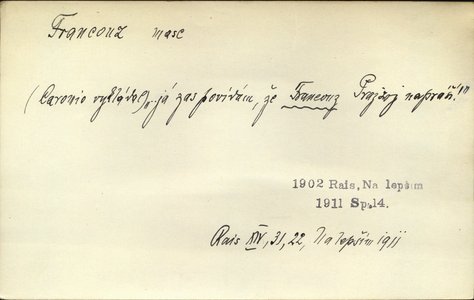 Francouz masc
(Caronio vykládal), já zas povídám, že Francouz Prajzoj napráší!"
1902 Rais, Na lepším
1911 Sp.14.
Rais XIV, 31, 22, Na lepším 1911